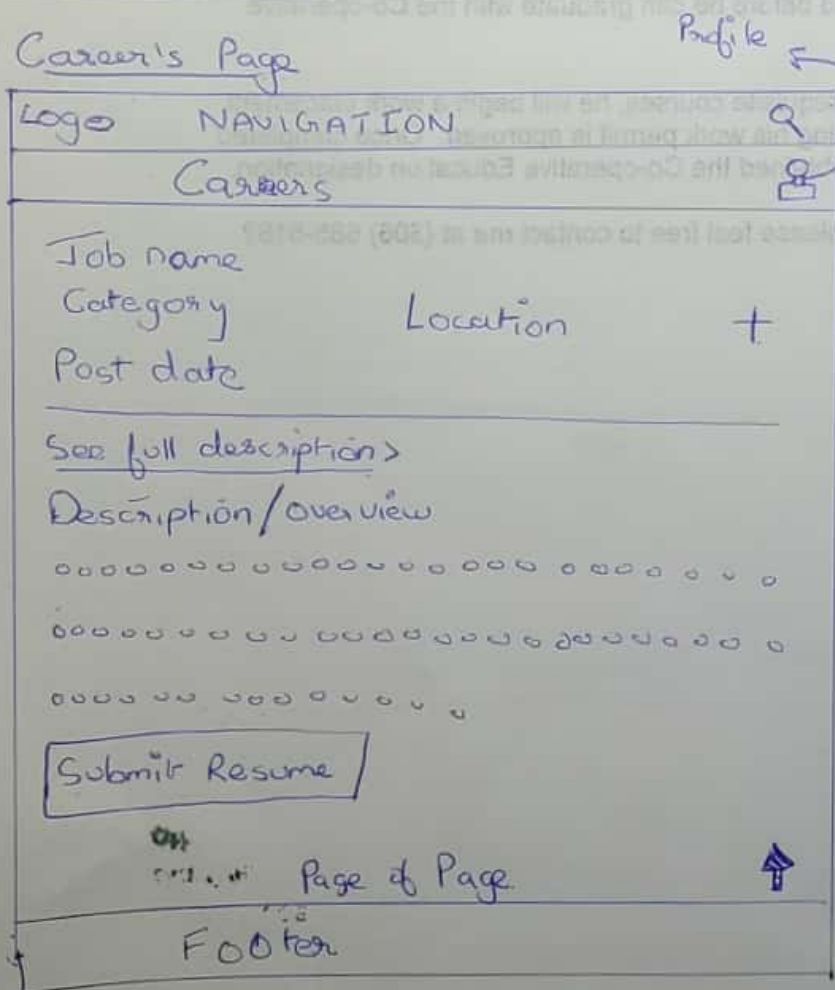 Profile
Career's Page
Logo NAVIGATION
Careers
Job name
Category Location +
Post date
See full description>
Description/overview
Submit Resume
Page of Page
Footer